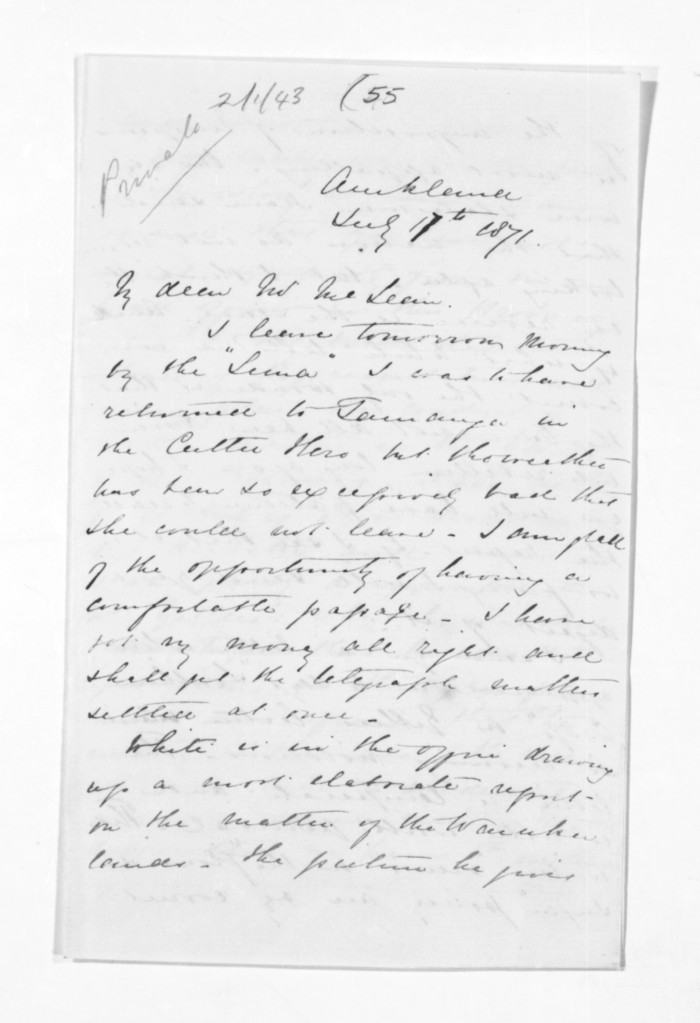 2/1/43 (55
Private
Auckland
July 17th 1871.
My dear Mr McLean.
I leave tomorrow morning
by the "Luna" I was to have
returned to Tauranga in
the Cutter Hero but the weather
has been so excessively bad that
she could not leave - I am glad
of the opportunity of having a
comfortable passage - I have
got my money all right and
shall get the telegraph matter
settled at once -
White is in the office drawing
up a most elaborate report
on the matter of the
lands - The picture he gives